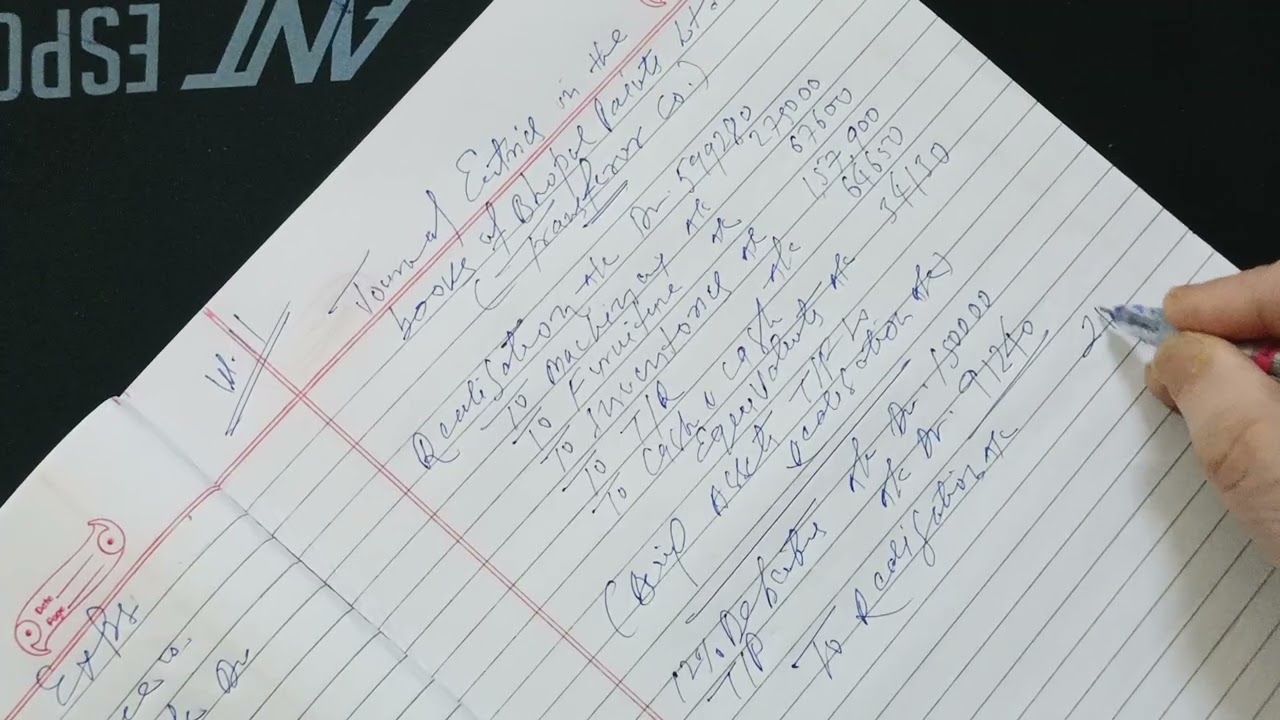 ANT
ESPO
Date
Page
W.
Journal Entries in the
books of Bhopal Paints Ltd
(Transferor Co.)
Realisation A/c Dr. 599280
To Machinery A/c 275000
To Furniture A/c 67600
To Inventories A/c 157,900
To T/R A/c 64650
To Cash & Cash
Equivalents A/c 34130
(Being Assets T/F to
Realisation A/c)
12% Debenture A/c Dr. 150000
T/P A/c Dr. 91240
To Realisation A/c 2